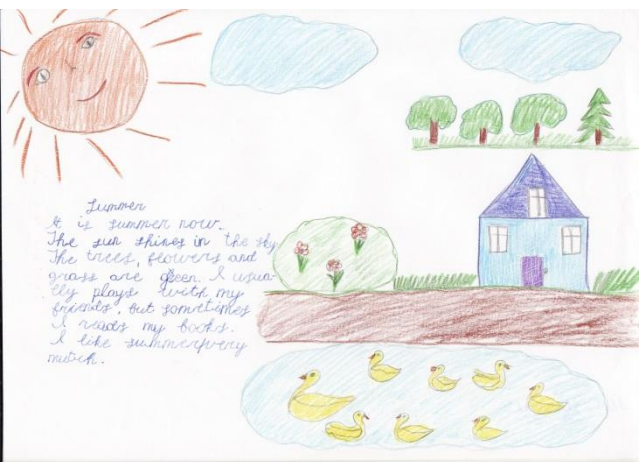 Summer
It is summer now.
The sun shines in the sky.
The trees, flowers and
grass are green. I usua-
lly plays with my
friends, but somtimes
I reads my books.
I like summer very
mutch.